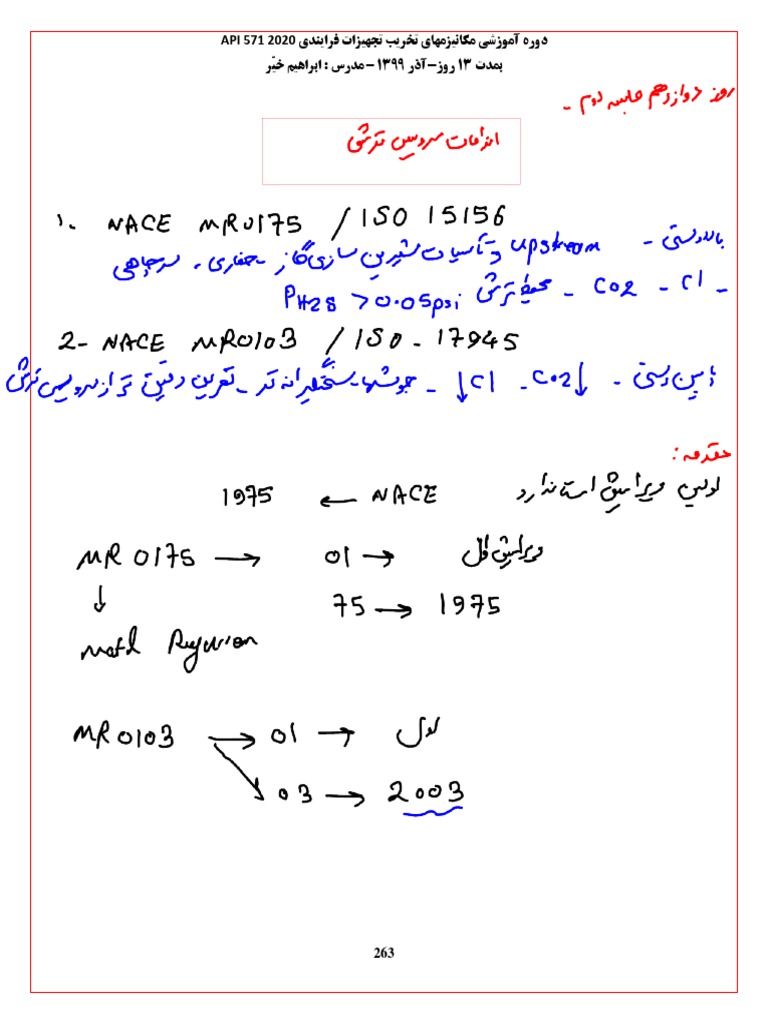 دوره آموزشی مکانیزمهای تخریب تجهیزات فرایندی API 571 2020
بمدت ۱۳ روز – آذر ۱۳۹۹ – مدرس : ابراهیم خیّر
روز دوازدهم جلسه دوم -
الزامات سرویس ترشی
۱- NACE MR0175 / ISO 15156
بالادستی - upstream و تأسیسات شیرین سازی گاز - حفاری - سرچاهی
- Cl - CO2 - محیط ترش PH2S > 0.05psi
2- NACE MR0103 / ISO - 17945
پایین دستی - CO2↓ - Cl↓ - جوشها - سختگیرانه تر - تعریف دقیق تر از سرویس ترش
مقدمه :
اولین ویرایش استاندارد NACE ← 1975
MR 0175 → 01 → ویرایش اول
↓ 75 → 1975
Matl Requrion
MR0103 → 01 → اول
03 → 2003
263